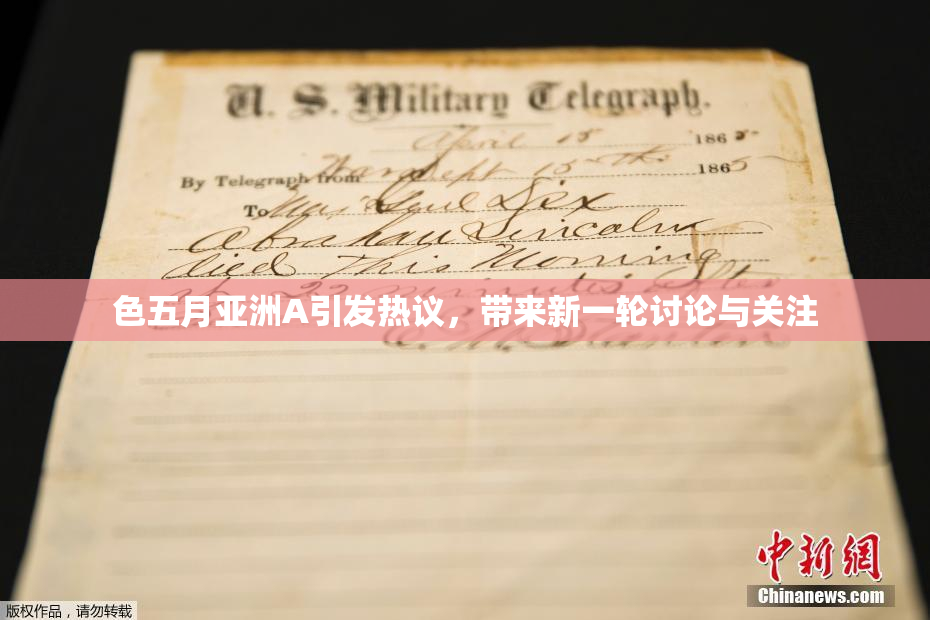 U. S. Military Telegraph.
April 15 1865
By Telegraph from War Dept 15th 1865
To Maj Genl Dix
Abraham Lincoln
died This Morning
at 22 minutes after
色五月亚洲A引发热议，带来新一轮讨论与关注
E. M. Stanton
中新网
Chinanews.com
版权作品，请勿转载